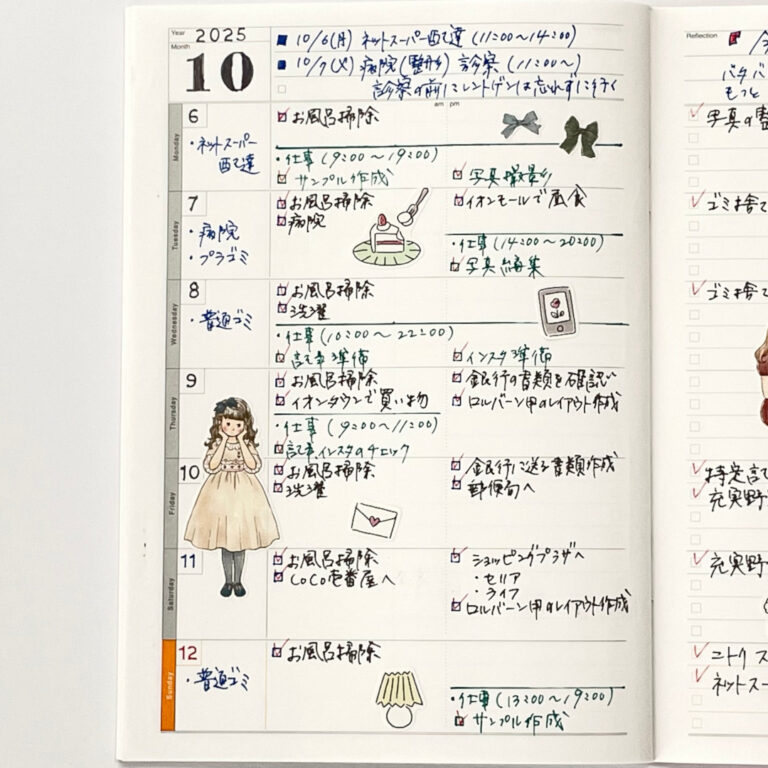 Year 2025
Month 10
10/6(月) ネットスーパー配達 (11:00〜14:00)
10/7(火) 病院(整形) 診察 (11:00〜)
診察の前にレントゲンは忘れずに行く
am pm
Monday
6
・ネットスーパー
配達
お風呂掃除
・仕事 (9:00〜19:00)
サンプル作成
写真撮影
Tuesday
7
・病院
・プラゴミ
お風呂掃除
病院
イオンモールで昼食
・仕事 (14:00〜20:00)
写真編集
Wednesday
8
・普通ゴミ
お風呂掃除
洗濯
・仕事 (10:00〜22:00)
記事準備
インスタ準備
Thursday
9
お風呂掃除
イオンタウンで買い物
銀行の書類を確認
ロルバーン用のレイアウト作成
・仕事 (9:00〜11:00)
記事、インスタのチェック
Friday
10
お風呂掃除
洗濯
銀行に送る書類作成
郵便局へ
Saturday
11
お風呂掃除
CoCo壱番屋へ
ショッピングプラザへ
・セリア
・ライフ
ロルバーン用のレイアウト作成
Sunday
12
・普通ゴミ
お風呂掃除
・仕事 (13:00〜19:00)
サンプル作成
Reflection
バタバ
もっと
写真の整
ゴミ捨て
ゴミ捨て
充実野
充実野
ニトリ ス
ネットスー